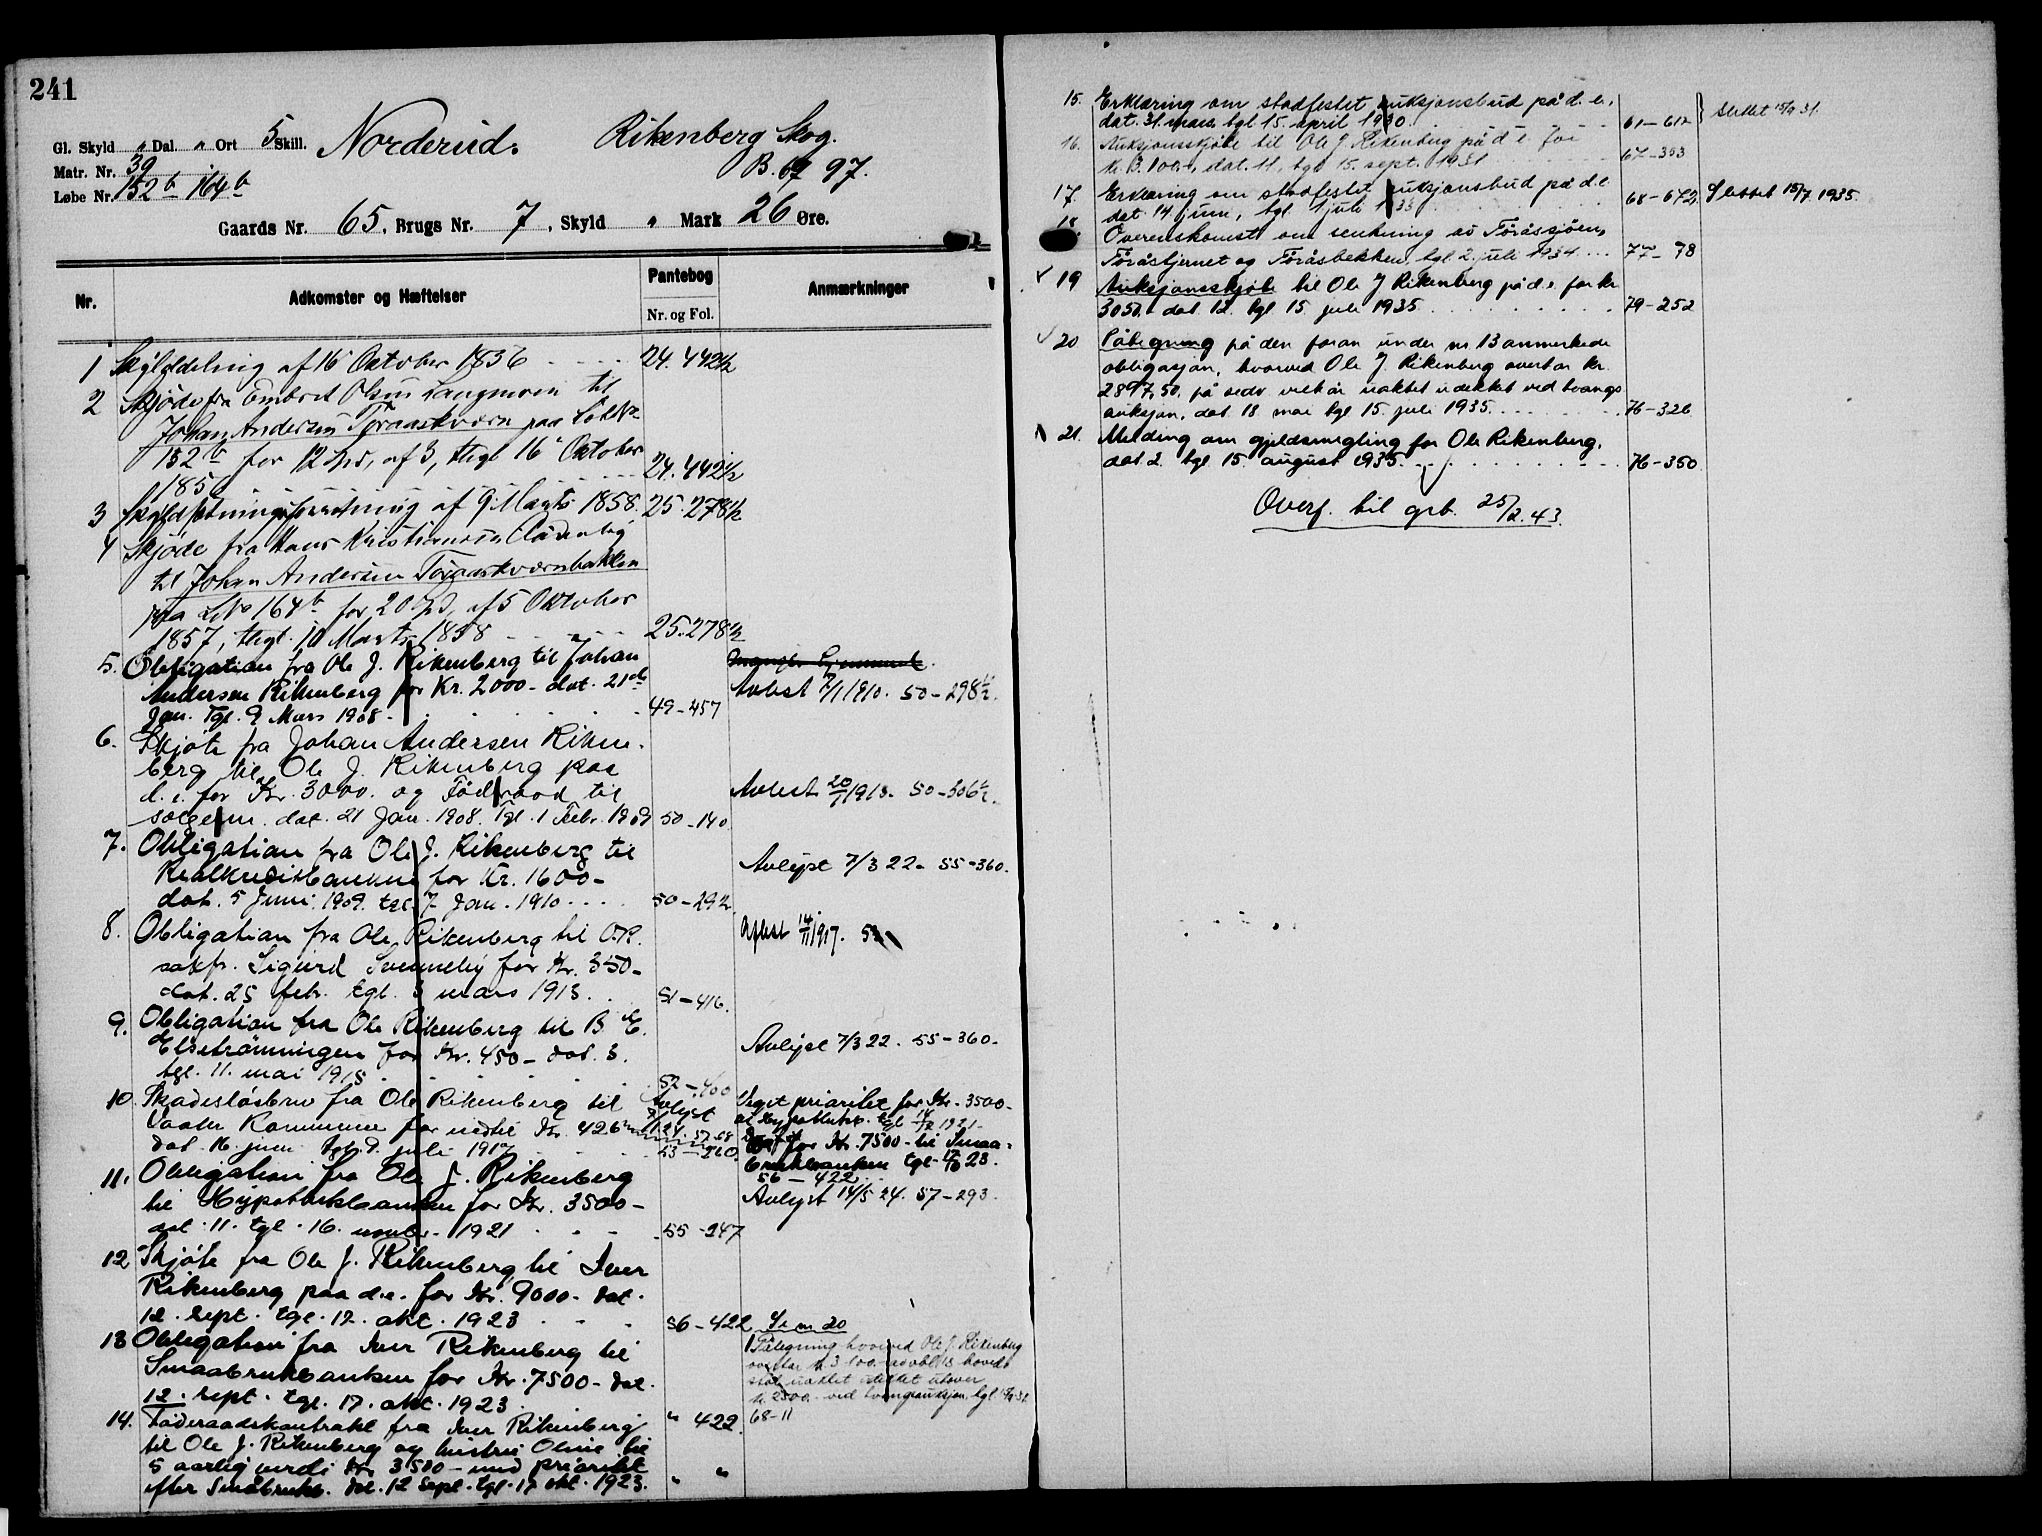 241
Gl. Skyld " Dal. " Ort 5 Skill. Norderud. Rikenberg Skog.
Matr. Nr. 39 B. 97.
Løbe Nr. 152b - 164b
Gaards Nr. 65, Brugs Nr. 7, Skyld " Mark 26 Øre.
Nr. Adkomster og Hæftelser Pantebog Nr. og Fol. Anmærkninger
1 Skylddeling af 16 Oktober 1856 24. 442½
2 Skjøde fra Embret Olsen Langmoen til
Johan Andersen Toraaskværn paa LøbNr
152b for 12 Spd, af 3, thgl 16 Oktober
1856 24. 442½
3 Skyldsætningsforretning af 9 Marts 1858. 25. 278½
4 Skjøde fra Hans Kristiansen
til Johan Andersen Toraaskværnbakken
paa LNo 164b for 20 Spd, af 5 Oktober
1857, thgl. 10 Marts 1858 25. 278½
5. Obligation fra Ole J. Rikenberg til Johan
Andersen Rikenberg for Kr. 2000- dat. 21de Avlest 7/1 1910. 50-298½.
Jan. Tgl. 9 Mars 1908. 49-457
6. Skjøte fra Johan Andersen Riken-
berg til Ole J. Rikenberg paa
d. e. for Kr. 3000. og Föderaad til Avlest 20/1 1913. 50-306½.
sælgeren. dat. 21 Jan. 1908. Tgl. 1 Febr. 1909 50-140
7. Obligation fra Ole J. Rikenberg til
Realkreditbanken for Kr. 1600- Avlyst 7/3 22. 55-360.
dat. 5 Juni 1909. tgl. 7 Jan. 1910 50-292.
8. Obligation fra Ole Rikenberg til O.R. Aflest 14/11 1917.
sakfr. Sigurd Svenneby for Kr. 350-
dat. 25 febr. tgl. 3 mars 1913. 51-416.
9. Obligation fra Ole Rikenberg til B. E.
Elsetrønningen for Kr. 450- dat. 3. Avlyst 7/3 22. 55-360-
tgl. 11. mai 1915 52-400
10. Skadesløsbrev fra Ole Rikenberg til Avlyst Veget prioritet for Kr. 3500-
Vaaler Kommune for indtil Kr. 426 at Hypotekbk. tgl 1921-
dat. 16 juni tgl. 9 juli 1917 53-260 for Kr. 7500- til Smaa-
brukbanken tgl. 17/10 23.
56-422
11. Obligation fra Ole J. Rikenberg
til Hypotekbanken for Kr. 3500- Avlyst 14/5 24. 57-293.
dat. 11. tgl. 16. novbr. 1921 55-247
12 Skjøte fra Ole J. Rikenberg til Iver
Rikenberg paa d.e. for Kr. 9000- dat.
12. sept. tgl. 17. okt. 1923 56-422 Se nr 20
13 Obligation fra Iver Rikenberg til Påtegning hvorved Ole J. Rikenberg
Smaabrukbanken for Kr. 7500- dat. overtar
12. sept. tgl. 17. okt. 1923. ved tvangsauksjon, tgl
14. Føderaadskontrakt fra Iver Rikenberg " 422. 68-11
til Ole J. Rikenberg og hustru Oline til
5 aarlig verdi Kr 3500- med prioritet
efter Småbrukb. dat. 12 sept. tgl. 17 okt. 1923. " "
15. Erklæring om stadfestet auksjonsbud på d. e.
dat. 31. mars tgl. 15. april 1930. 61-612 slettet 15/9 31.
16. Auksjonsskjøte til Ole J. Rikenberg på d e for
kr. 3.100.-, dat. 11, tgl 15. sept. 1931 67-353
17. Erklæring om stadfestet auksjonsbud på d.e.
dat. 14. juni, tgl. 1 juli 1933 68-672 Slettet 15/7 1935.
18. Overenskomst om senkning av Toråssjøen,
Toråstjernet og Toråsbekken, tgl. 2. juli 1934 77-78
19 Auksjonsskjøte til Ole J Rikenberg på d.e. for kr
3050. dat. 12. tgl 15. juli 1935 79-252
20 Påtegning på den foran under nr 13 anmerkede
obligasjon, hvorved Ole J. Rikenberg overtar kr.
2897,50, på sedv. vilkår uaktet udekket ved tvangs-
auksjon, dat. 18. mai tgl 15. juli 1935. 76-326
21. Melding om gjeldsmegling for Ole Rikenberg,
dat. 2. tgl. 15. august 1935. 76-350
Overf. til grb. 25/2.43.